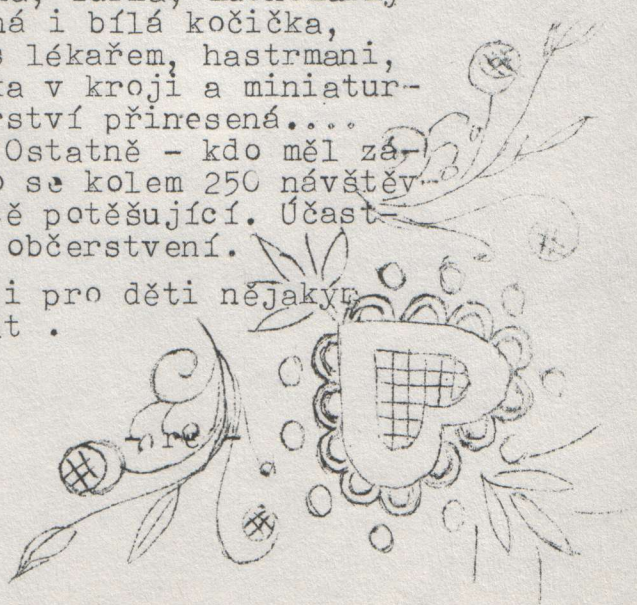 ná i bílá kočička,
s lékařem, hastrmani,
ka v kroji a miniatur-
rství přinesená....
Ostatně - kdo měl zá-
o se kolem 250 návštěv-
ě potěšující. Účast-
občerstvení.
i pro děti nějakým
t .
-pre-